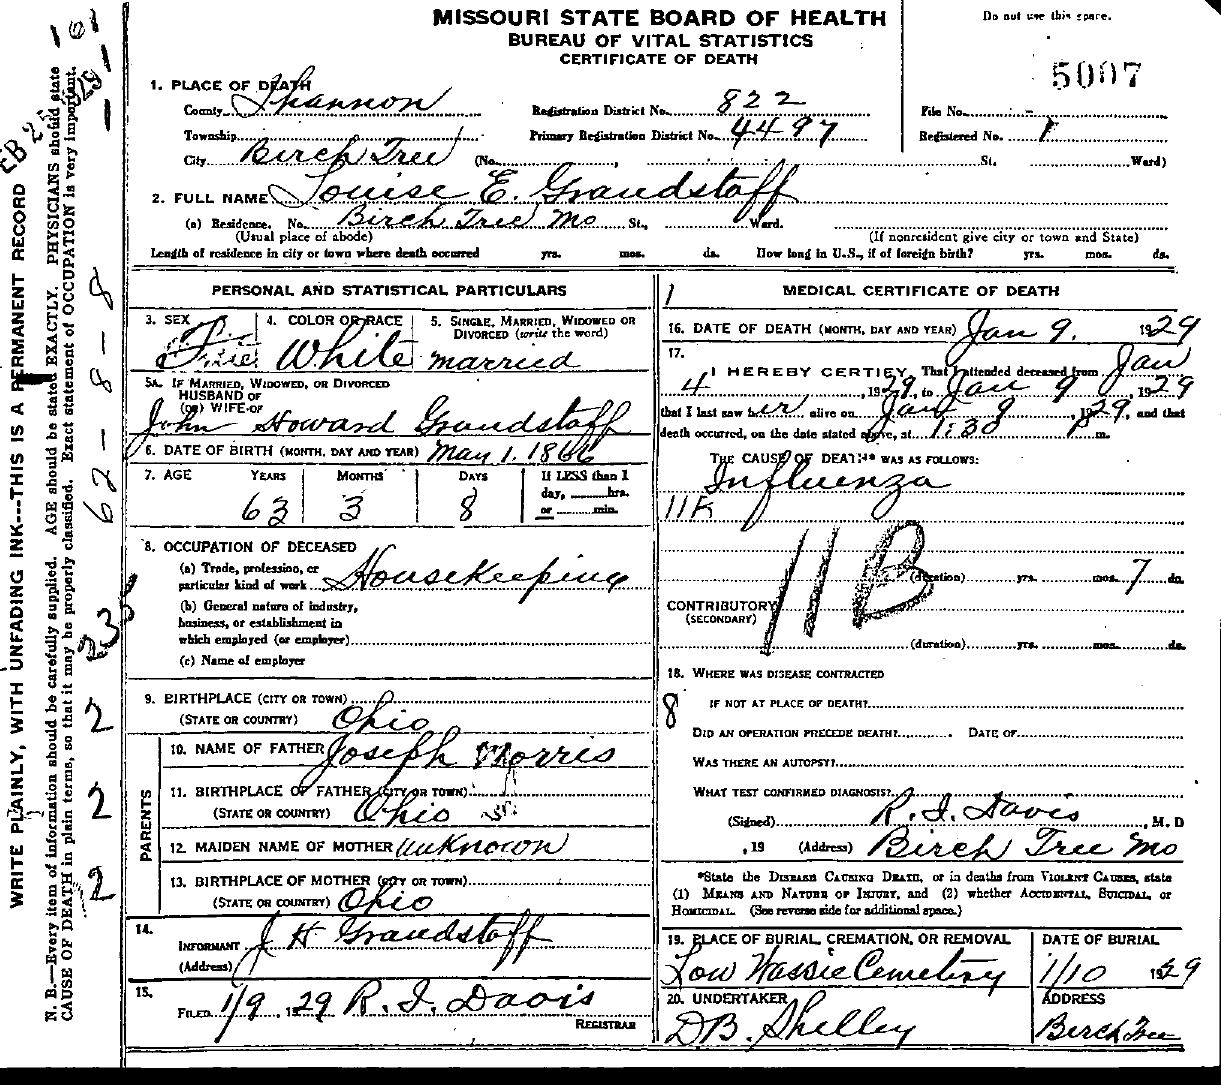 MISSOURI STATE BOARD OF HEALTH
BUREAU OF VITAL STATISTICS
CERTIFICATE OF DEATH
Do not use this space.
5007
1. PLACE OF DEATH
County Shannon Registration District No. 822 File No. -
Township Primary Registration District No. 4497 Registered No. 1
City Birch Tree (No. , St. Ward)
2. FULL NAME Louise E. Grandstaff
(a) Residence. No. Birch Tree Mo St., Ward.
(Usual place of abode) (If nonresident give city or town and State)
Length of residence in city or town where death occurred yrs. mos. ds. How long in U.S., if of foreign birth? yrs. mos. ds.
PERSONAL AND STATISTICAL PARTICULARS
3. SEX 4. COLOR OR RACE 5. SINGLE, MARRIED, WIDOWED OR
DIVORCED (write the word)
White married
5A. IF MARRIED, WIDOWED, OR DIVORCED
HUSBAND OF
(OR) WIFE OF
John Howard Grandstaff
6. DATE OF BIRTH (MONTH, DAY AND YEAR) May 1. 1866
7. AGE YEARS MONTHS DAYS If LESS than 1
day, hrs.
63 3 8 or min.
8. OCCUPATION OF DECEASED
(a) Trade, profession, or
particular kind of work Housekeeping
(b) General nature of industry,
business, or establishment in
which employed (or employer)
(c) Name of employer
9. BIRTHPLACE (CITY OR TOWN)
(STATE OR COUNTRY) Ohio
PARENTS
10. NAME OF FATHER Joseph Morris
11. BIRTHPLACE OF FATHER (CITY OR TOWN)
(STATE OR COUNTRY) Ohio
12. MAIDEN NAME OF MOTHER unknown
13. BIRTHPLACE OF MOTHER (CITY OR TOWN)
(STATE OR COUNTRY) Ohio
14. INFORMANT J H Grandstaff
(Address)
15. FILED 1/9, 1929 R. I. Davis
REGISTRAR
1
MEDICAL CERTIFICATE OF DEATH
16. DATE OF DEATH (MONTH, DAY AND YEAR) Jan 9. 1929
17.
I HEREBY CERTIFY, That I attended deceased from Jan
4, 1929, to Jan 9, 1929
that I last saw her alive on Jan 9, 1929, and that
death occurred, on the date stated above, at 1:30 P m.
THE CAUSE OF DEATH* WAS AS FOLLOWS:
Influenza
11B
(duration) yrs. mos. 7 ds.
CONTRIBUTORY
(SECONDARY)
(duration) yrs. mos. ds.
18. WHERE WAS DISEASE CONTRACTED
8 IF NOT AT PLACE OF DEATH?
DID AN OPERATION PRECEDE DEATH? DATE OF
WAS THERE AN AUTOPSY?
WHAT TEST CONFIRMED DIAGNOSIS?
(Signed) R. I. Davis, M. D
, 19 (Address) Birch Tree Mo
*State the DISEASE CAUSING DEATH, or in deaths from VIOLENT CAUSES, state
(1) MEANS AND NATURE OF INJURY, and (2) whether ACCIDENTAL, SUICIDAL, or
HOMICIDAL. (See reverse side for additional space.)
19. PLACE OF BURIAL, CREMATION, OR REMOVAL DATE OF BURIAL
Low Wassie Cemetery 1/10 1929
20. UNDERTAKER ADDRESS
D.B. Shelley Birch Tree
WRITE PLAINLY, WITH UNFADING INK---THIS IS A PERMANENT RECORD
N. B.—Every item of information should be carefully supplied. AGE should be stated EXACTLY. PHYSICIANS should state
CAUSE OF DEATH in plain terms, so that it may be properly classified. Exact statement of OCCUPATION is very important.
62-8-8
235
2
2
2